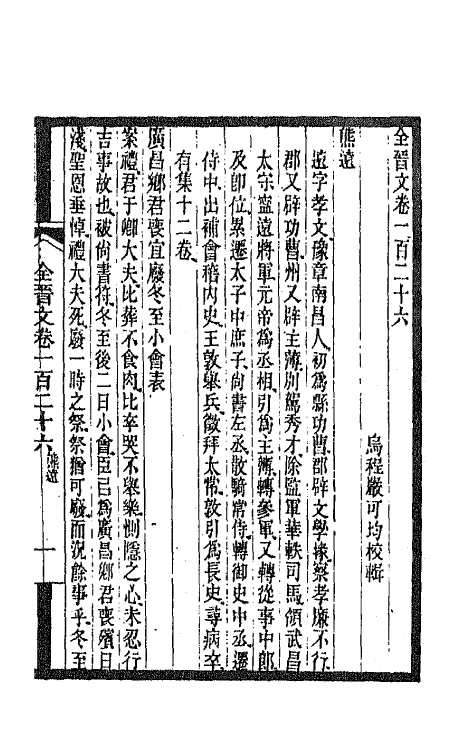 全晉文卷一百二十六
烏程嚴可均校輯
熊遠
遠字孝文豫章南昌人初爲縣功曹郡辟文學掾察孝廉不行
郡又辟功曹州又辟主薄別駕秀才除監軍華軼司馬領武昌
太守寧遠將軍元帝爲丞相引爲主簿轉參軍又轉從事中郎
及卽位累遷太子中庶子尚書左丞散騎常侍轉御史中丞遷
侍中出補會稽内史王敦舉兵徵拜太常敦引爲長史尋病卒
有集十二卷
廣昌鄉君喪宜廢冬至小會表
案禮君于卿大夫比葬不食肉比卒哭不舉樂惻隱之心未忍行
吉事故也被尚書符冬至後二日小會臣已爲廣昌鄉君喪殯日
淺聖恩垂悼禮大夫死廢一時之祭祭猶可廢而況餘事乎冬至
全晉文卷一百二十六 熊遠 一